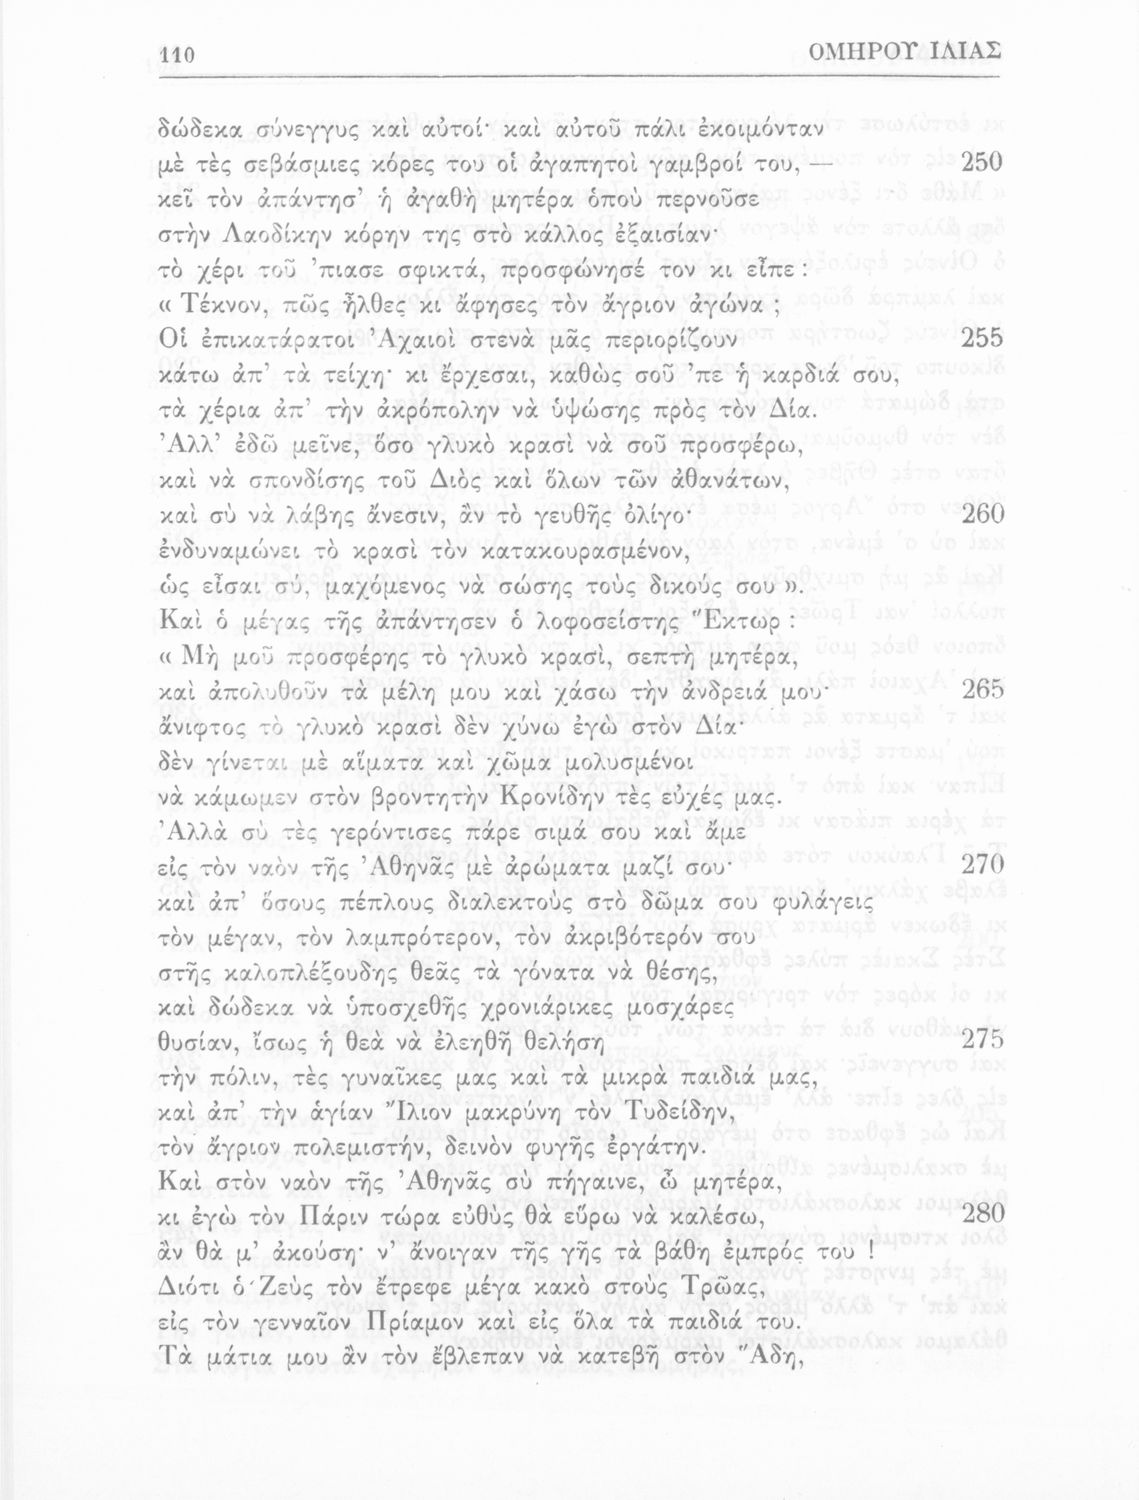 110
ΟΜΗΡΟΥ ΙΛΙΑΣ
δώδεκα σύνεγγυς καὶ αὐτοί· καὶ αὐτοῦ πάλι ἐκοιμόνταν
μὲ τὲς σεβάσμιες κόρες του οἱ ἀγαπητοὶ γαμβροί του, — 250
κεῖ τὸν ἀπάντησ’ ἡ ἀγαθὴ μητέρα ὁποὺ περνοῦσε
στὴν Λαοδίκην κόρην της στὸ κάλλος ἐξαισίαν·
τὸ χέρι τοῦ ’πιασε σφικτά, προσφώνησέ τον κι εἶπε :
« Τέκνον, πῶς ἦλθες κι ἄφησες τὸν ἄγριον ἀγώνα ;
Οἱ ἐπικατάρατοι Ἀχαιοὶ στενὰ μᾶς περιορίζουν 255
κάτω ἀπ’ τὰ τείχη· κι ἔρχεσαι, καθὼς σοῦ ’πε ἡ καρδιά σου,
τὰ χέρια ἀπ’ τὴν ἀκρόπολην νὰ ὑψώσης πρὸς τὸν Δία.
Ἀλλ’ ἐδῶ μεῖνε, ὅσο γλυκὸ κρασὶ νὰ σοῦ προσφέρω,
καὶ νὰ σπονδίσης τοῦ Διὸς καὶ ὅλων τῶν ἀθανάτων,
καὶ σὺ νὰ λάβης ἄνεσιν, ἂν τὸ γευθῆς ὀλίγο· 260
ἐνδυναμώνει τὸ κρασὶ τὸν κατακουρασμένον,
ὡς εἶσαι σύ, μαχόμενος νὰ σώσης τοὺς δικούς σου ».
Καὶ ὁ μέγας τῆς ἀπάντησεν ὁ λοφοσείστης Ἕκτωρ :
« Μὴ μοῦ προσφέρης τὸ γλυκὸ κρασὶ, σεπτὴ μητέρα,
καὶ ἀπολυθοῦν τὰ μέλη μου καὶ χάσω τὴν ἀνδρειά μου· 265
ἄνιφτος τὸ γλυκὸ κρασὶ δὲν χύνω ἐγὼ στὸν Δία·
δὲν γίνεται μὲ αἵματα καὶ χῶμα μολυσμένοι
νὰ κάμωμεν στὸν βροντητὴν Κρονίδην τὲς εὐχές μας.
Ἀλλὰ σὺ τὲς γερόντισες πάρε σιμά σου καὶ ἄμε
εἰς τὸν ναὸν τῆς Ἀθηνᾶς μὲ ἀρώματα μαζί σου· 270
καὶ ἀπ’ ὅσους πέπλους διαλεκτοὺς στὸ δῶμα σου φυλάγεις
τὸν μέγαν, τὸν λαμπρότερον, τὸν ἀκριβότερόν σου
στῆς καλοπλέξουδης θεᾶς τὰ γόνατα νὰ θέσης,
καὶ δώδεκα νὰ ὑποσχεθῆς χρονιάρικες μοσχάρες
θυσίαν, ἴσως ἡ θεὰ νὰ ἐλεηθῆ θελήση 275
τὴν πόλιν, τὲς γυναῖκες μας καὶ τὰ μικρὰ παιδιά μας,
καὶ ἀπ’ τὴν ἁγίαν Ἴλιον μακρύνη τὸν Τυδείδην,
τὸν ἄγριον πολεμιστήν, δεινὸν φυγῆς ἐργάτην.
Καὶ στὸν ναὸν τῆς Ἀθηνᾶς σὺ πήγαινε, ὦ μητέρα,
κι ἐγὼ τὸν Πάριν τώρα εὐθὺς θὰ εὕρω νὰ καλέσω, 280
ἂν θὰ μ’ ἀκούση· ν’ ἄνοιγαν τῆς γῆς τὰ βάθη ἐμπρός του !
Διότι ὁ Ζεὺς τὸν ἔτρεφε μέγα κακὸ στοὺς Τρῶας,
εἰς τὸν γενναῖον Πρίαμον καὶ εἰς ὅλα τὰ παιδιά του.
Τὰ μάτια μου ἂν τὸν ἔβλεπαν νὰ κατεβῆ στὸν Ἅδη,